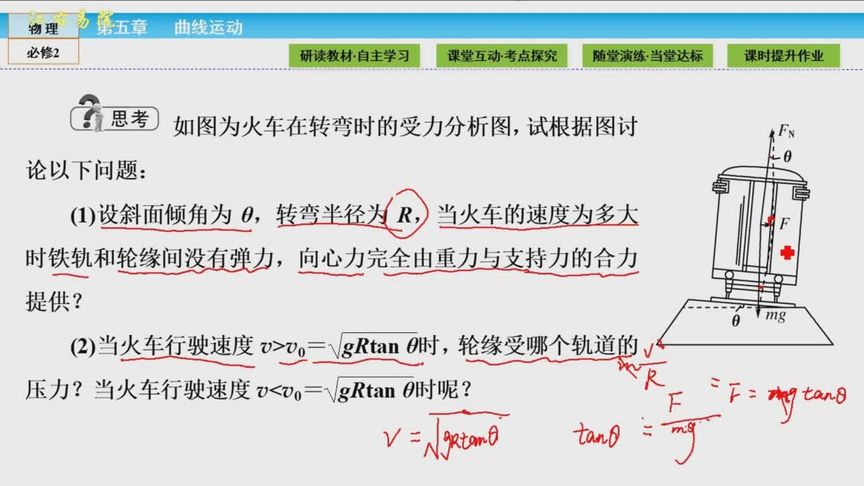 物理
必修2
第五章 曲线运动
研读教材·自主学习
课堂互动·考点探究
随堂演练·当堂达标
课时提升作业
思考 如图为火车在转弯时的受力分析图,试根据图讨
论以下问题:
(1)设斜面倾角为 θ,转弯半径为 R,当火车的速度为多大
时铁轨和轮缘间没有弹力,向心力完全由重力与支持力的合力
提供?
(2)当火车行驶速度 v>v₀=√gRtan θ时,轮缘受哪个轨道的
压力?当火车行驶速度 v<v₀=√gRtan θ时呢?
F_N
θ
F
θ
mg
m v²/R = F = mg tanθ
V = √gRtanθ
tanθ = F/mg